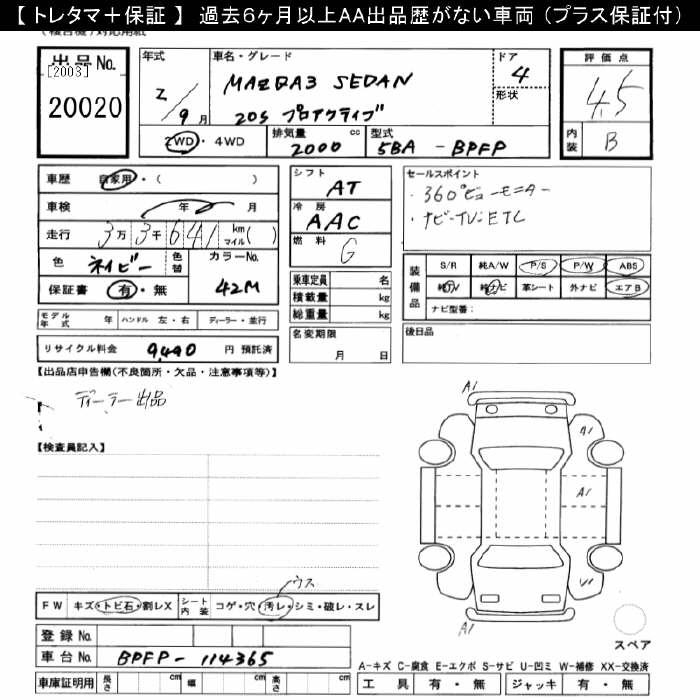 【トレタマ+保証】 過去6ヶ月以上AA出品歴がない車両(プラス保証付)
出品No.
[2003]
20020
年式
2/9月
車名・グレード
MAZDA3 SEDAN
20S プロアクティブ
ドア
4
形状
評価点
4.5
内装
B
2WD・4WD
排気量 cc
2000
型式
5BA - BPFP
車歴 自家用・( )
車検 年 月
走行 3万3千641 km マイル( )
色 ネイビー 色替
カラーNo.
42M
保証書 有・無
モデル年式 年 ハンドル 左・右 ディーラー・並行
リサイクル料金 9,490 円 預託済
シフト
AT
冷房
AAC
燃料
G
乗車定員 名
積載量 kg
総重量 kg
名変期限
月 日
セールスポイント
・360°ビューモニター
・ナビ・TV・ETC
装備品
S/R 純A/W P/S P/W ABS
純TV 純ナビ 革シート 外ナビ エアB
ナビ型番:
後日品
【出品店申告欄(不良箇所・欠品・注意事項等)】
ディーラー出品
【検査員記入】
A1
A1
A1
A1
ウス
FW キズ・トビ石・割レX シート内装 コゲ・穴・汚レ・シミ・破レ・スレ
登録No.
車台No. BPFP-114365
車庫証明用 長さ cm 幅 cm 高さ cm
スペア
A-キズ C-腐食 E-エクボ S-サビ U-凹ミ W-補修 XX-交換済
工具 有・無 ジャッキ 有・無